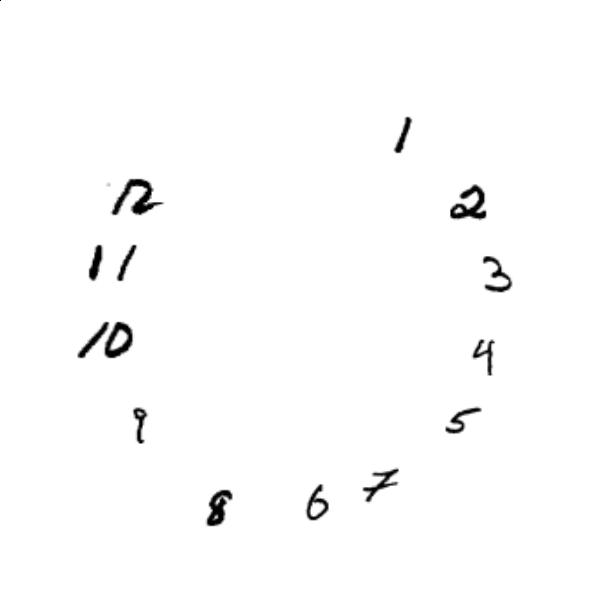 1
12 2
11 3
10 4
9 5
8 6 7